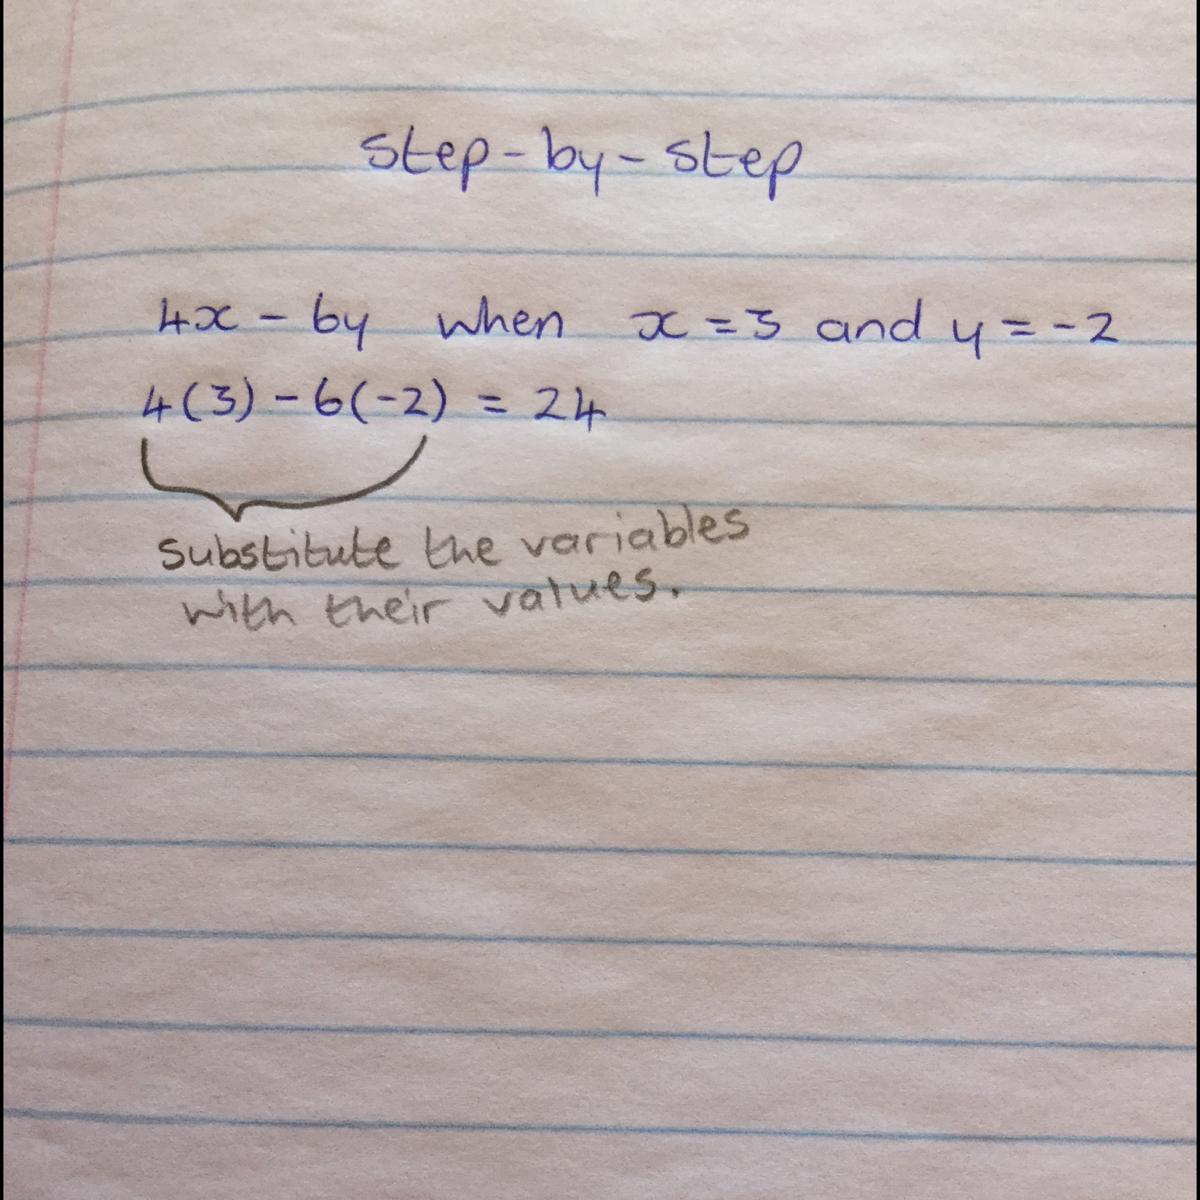 step-by-step
4x - 6y when x = 3 and y = -2
4(3) - 6(-2) = 24
substitute the variables
with their values.